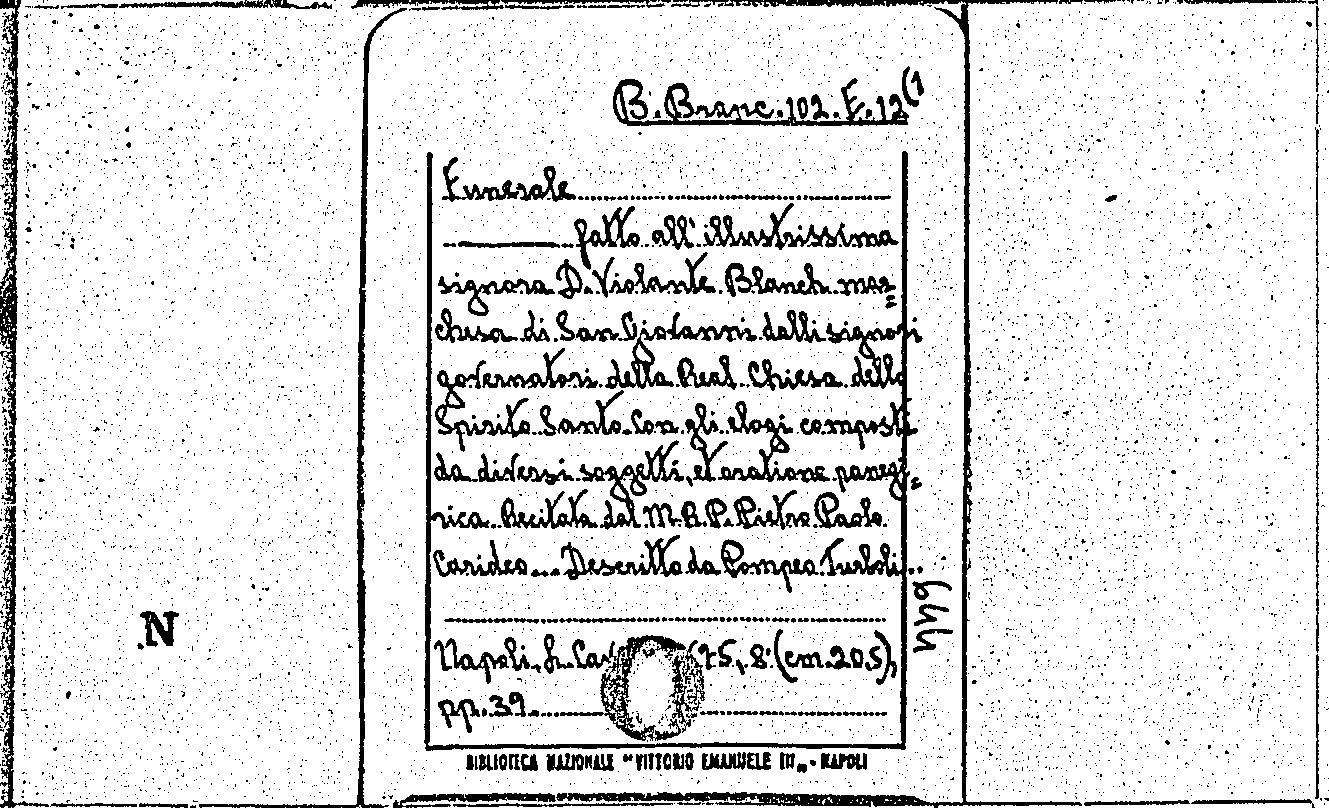 B. Branc. 102. E. 12(1
Funerale
fatto all' illustrissima
signora D. Violante Blanch mar=
chesa di San Giovanni dalli signori
governatori della Real Chiesa dello
Spirito Santo. Con gli elogi composti
da diversi soggetti, et oratione panegi=
rica. Recitata dal M. R. P. Pietro Paolo
Carideo... Descritto da Pompeo Turboli..
649
Napoli, L. 75, 8° (cm. 20,5),
pp. 39.
N
BIBLIOTECA NAZIONALE "VITTORIO EMANUELE III„ - NAPOLI